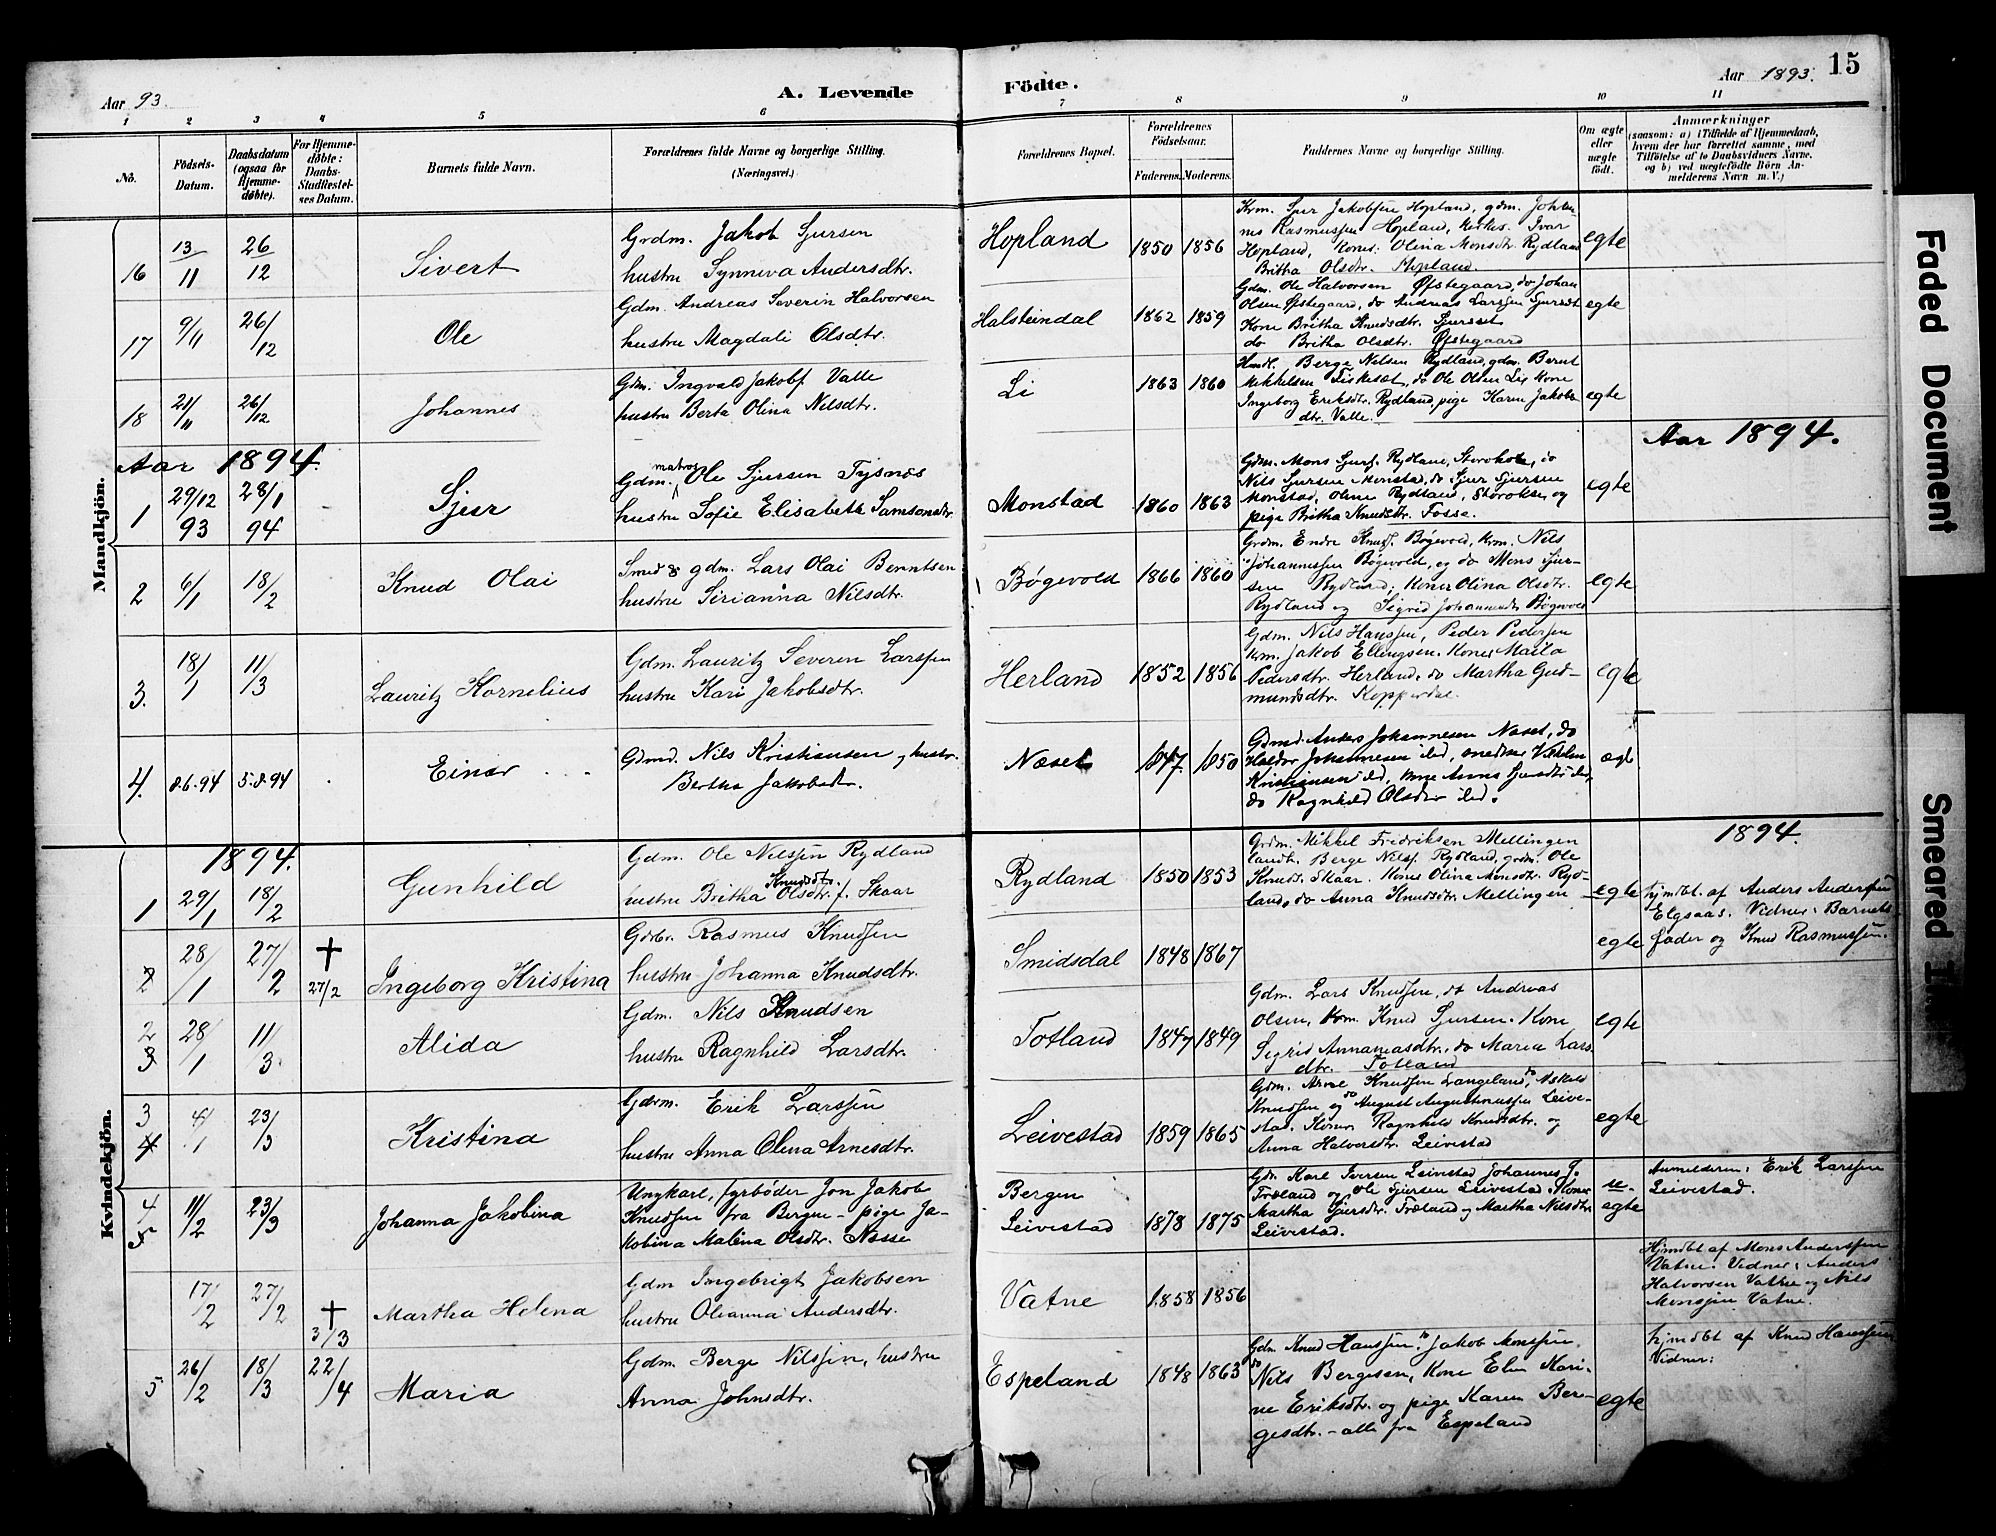 15
Aar 93.
A. Levende
Födte.
Aar 1893.
1 2 3 4 5 6 7 8 9 10 11
No.
Födsels-Datum.
Daabsdatum (ogsaa for Hjemme-døbte).
For Hjemme-døbte: Daabs-Stadfæstel-ses Datum.
Barnets fulde Navn.
Forældrenes fulde Navne og borgerlige Stilling.
(Næringsvei.)
Forældrenes Bopæl.
Forældrenes Födselsaar.
Faderens. Moderens.
Faddernes Navne og borgerlige Stilling.
Om ægte eller uægte födt.
Anmærkninger
(saasom: a) i Tilfælde af Hjemmedaab,
hvem der har forrettet samme, med
Tilföielse af to Daabsvidners Navne,
og b) ved uægtefödte Börn An-
melderens Navn m. V.)
Mandkjön.
16 13/11 26/12 Sivert
Grdm. Jakob Sjursen
hustru Synneva Andersdtr.
Hopland 1850 1856
Krm. Sjur Jakobsen Hopland, gdm. Johan-
nes Rasmussen Hopland, Kirkes. Ivar
Hopland, Koner: Olina Monsdtr. Rydland
Britha Olsdtr. Hopland.
egte
17 9/11 26/12 Ole
Gdm. Andreas Severin Halvorsen
hustru Magdali Olsdtr.
Halsteindal 1862 1859
Gdm. Ole Halvorsen Øfstegaard, do Johan
Olsen Øfstegaard, do Andreas Larssen Sjurset
Kone Britha Knudsdtr. Sjurset
do Britha Olsdtr. Øfstegaard
egte
18 21/11 26/12 Johannes
Gdm. Ingvald Jakobs. Valle
hustru Berta Olina Nilsdtr.
Li 1863 1860
Hndl. Berge Nilsen Rydland, gdm. Bernt
Mikkelsen Fiskeset, do Ole Olsen Li, Kone
Ingeborg Eriksdtr. Rydland, pige Karen Jakobs-
dtr. Valle.
egte
Aar 1894.
Aar 1894.
1 29/12 93 28/1 94 Sjur
Gdm. matros Ole Sjursen Tysnæs
hustru Sofie Elisabeth Samsonsdtr
Monstad 1860 1863
Gdm. Mons Sjurs. Rydland, do
Nils Sjursen Monstad, do Sjur Sjursen
Monstad, Rydland, og
pige Britha Knudsdtr. Fosse.
egte
2 6/1 18/2 Knud Olai
Smed & gdm. Lars Olai Berntsen
hustru Sirianna Nilsdtr.
Bøgevold 1866 1860
Grdm. Endre Knuds. Bøgevold, Krm. Nils
Johannessen Bøgevold, og do Mons Sjur-
sen Rydland; Koner Olina Olsdtr.
Rydland og Sigrid Johannesdtr Bøgevold
egte
3. 18/1 11/3 Lauritz Kornelius
Gdm. Lauritz Severin Larssen
hustru Kari Jakobsdtr.
Herland 1852 1856
Gdm. Nils Hanssen, Peder Pedersen
Krm. Jakob Ellingsen. Koner Maria
Pedersdtr. Herland, do Martha Gud-
mundsdtr. Kopperdal.
egte
4. 8.6.94 5.8.94 Einar
Gdmd. Nils Kristiansen og hustr.
Bertha Jakobsdtr.
Næset 1847. 1850
Gdmd. Anders Johannesen Næset, do
Haldor Johannesen ibd,
Kristiansen ibd, kone Anna ibd,
do Ragnhild Olsdtr ibd.
ægt
Kvindekjön.
1894.
1894.
1 29/1 18/2 Gunhild
Gdm. Ole Nilssen Rydland
hustru Britha Knudsdtr. Olsdtr. f. Skaar
Rydland 1850 1853
Grdm. Mikkel Fredriksen Mellingen
landh. Berge Nils. Rydland, grdm. Ole
Knuds. Skaar. Koner Olina Monsdtr. Ryd-
land, do Anna Knudsdtr. Mellingen
egte
2 28/1 27/2 † 27/2 Ingeborg Kristina
Gdbr. Rasmus Knudsen
hustru Johanna Knudsdtr.
Smidsdal 1848 1867
egte
hjmdbt. af Anders Andersen
Elgsaas. Vidner: Barnets
fader og Knud Rasmussen.
2 3 28/1 11/3. Alida
Gdm. Nils Knudsen
hustru Ragnhild Larsdtr.
Totland 1847 1849
Gdm. Lars Knudsen, do Andreas
Olsen, Krm. Knud Sjursen. Kone
Sigrid Annaniasdtr., do Maria Lars-
dtr. Totland
egte
3 4 4/1 23/3 Kristina
Gdrm. Erik Larssen
hustru Anna Olina Arnesdtr.
Leivestad 1859 1865
Gdm. Arne Knudsen Langeland, do Askild
Knudsen og do August Augustinussen Leive-
stad. Koner Ragnhild Knudsdtr. og
Anna Halvorsdtr. Leivestad
egte
4 5 11/2 23/3 Johanna Jakobina
Ungkarl, fyrbøder Jon Jakob
Knudsen fra Bergen - pige Ja-
kobina Malena Olsdtr. Nesse
Bergen
Leivestad 1878 1875
Gdr. Karl Iversen Leivestad, Johannes J.
Fræland og Ole Sjursen Leivestad. Koner
Martha Sjursdtr. Fræland og Martha Nilsdtr.
Leivestad.
u-
egte
Anmelderen: Erik Larssen
Leivestad.
17/2 27/2 † 3/3 Martha Helena
Gdm Ingebrigt Jakobsen
hustru Olianna Andersdtr.
Vatne 1858 1856
Hjmdbt af Mons Anderssen
Vatne. Vidner: Anders
Halvorsen Vatne og Nils
Monssen Vatne.
5 26/2 18/3 22/4 Maria
Gdm. Berge Nilssen, hustru
Anna Johnsdtr.
Espeland 1848 1863
Gdm. Knud Hanssen, do Jakob Monssen,
do Nils Bergesen, Kone Elen Kari-
ne Eriksdtr. og pige Karen Ber-
gesdtr. - alle fra Espeland
egte
hjmdbt af Knud Hanssen
Vidner:
Faded Document
Smeared